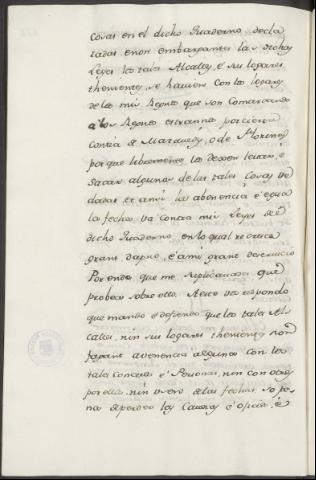 cosas en el dicho Quaderno decla
radas enon embargantes las dichas
Leyes los tales Alcaldes, é sus logares
thenientes, se havien con los logares
de los mis Regnos que son Comarcanos
a los Regnos estraños por cierta
contía de Maravedís, o de Florines
porque libremente los dexen levar, é
sacar algunas de las tales Cosas ve
dadas et ansi la abenencia é egua
la fecha, va contra mis Leyes del
dicho Quaderno en lo qual recrece
grant dapño, é a mi grant deservicio
Por ende que me suplicavades que
probeer sobre ello. A esto vos respondo
que mando é defiendo que los tales Al
caldes, nin sus logares thenientes non
fagan avenencia alguna con los
tales concejos é Personas, nin con otros
por ellos, nin usen de las fechas, so pe
na de perder los Cuerpos é oficios, é